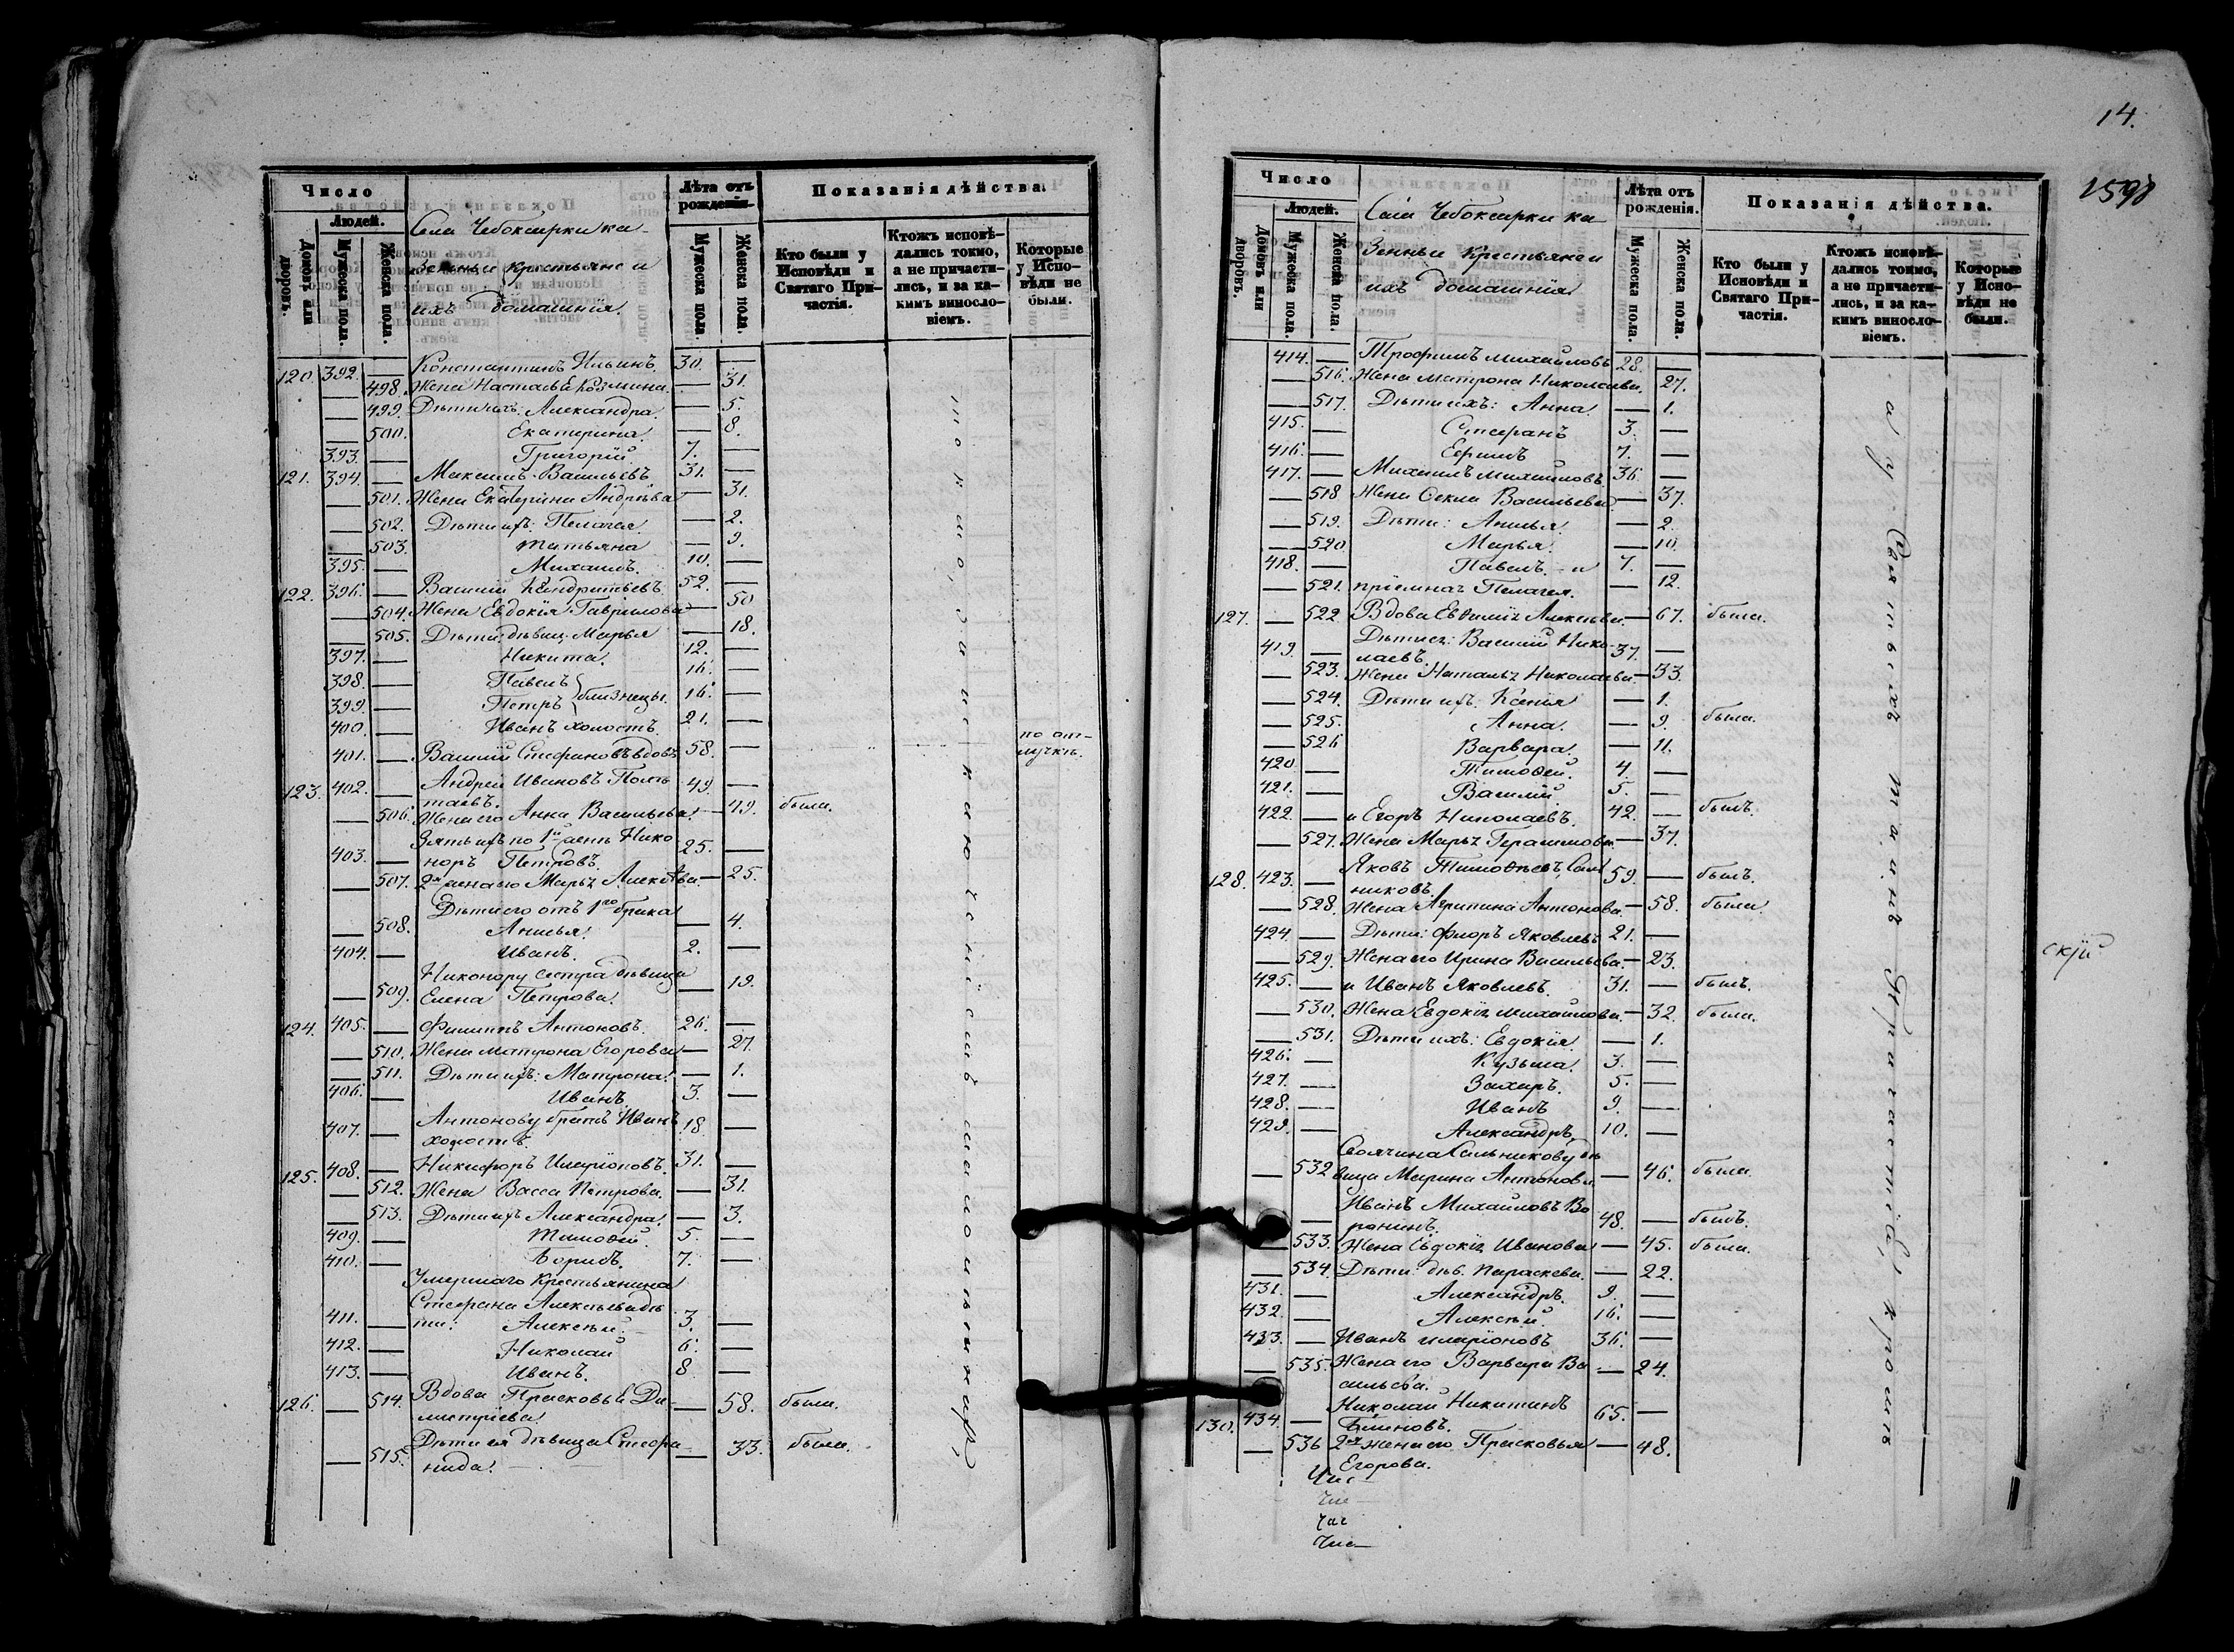 Число
Людей.
Домовъ или дворовъ.
Мужеска пола.
Женска пола.
Села Чебоксарки ка-
зенные крестьяне и
ихъ домашнія.
Лѣта отъ рожденія.
Мужеска пола.
Женска пола.
Показанія дѣйства.
Кто были у Исповѣди и Святаго Причастія.
Ктожъ исповѣдались токмо, а не причастились, и за какимъ винословіемъ.
Которые у Исповѣди не были.
120. 392. — Константинъ Ильинъ. 30. —
— 498. Жена Настасья Козмина. — 31.
— 499. Дѣти ихъ: Александра. — 5.
— 500. Екатерина. — 8.
393. — Григорій. 7. —
121. 394. — Максимъ Васильевъ. 31. —
— 501. Жена Екатерина Андреева — 31.
— 502. Дѣти ихъ: Пелагея — 2.
— 503. Татьяна — 9.
395. — Михаилъ. 10. —
122. 396. — Василій Кондратьевъ 52. —
— 504. Жена Евдокія Гаврилова — 50
— 505. Дѣти: дѣвиц. Марья — 18.
397. — Никита. 12. —
398. — Павелъ 16. —
399. — Петръ } близнецы. 16. —
400. — Иванъ холостъ. 21. —
401. — Василій Стефановъ вдовъ 58. — по от-
лучкѣ.
123. 402. — Андрей Ивановъ Полѣ
таевъ. 49. —
— 506. Жена его Анна Васильева — 49. была.
403. — Зять ихъ по 1й женѣ Нико
норъ Петровъ. 25. —
— 507. 2я жена его Марья Алексѣева. — 25.
Дѣти его отъ 1го брака
— 508. Анисья. — 4.
404. — Иванъ. 2. —
— 509. Никонору сестра дѣвица
Елена Петрова. — 19.
124. 405. — Филиппъ Антоновъ. 26. —
— 510. Жена Матрона Егорова — 27.
— 511. Дѣти ихъ: Матрона. — 1.
406. — Иванъ. 3. —
407. — Антонову братъ Иванъ
холостъ. 18 —
125. 408. — Никифоръ Иларіоновъ. 31. —
— 512. Жена Васса Петрова. — 31.
— 513. Дѣти ихъ Александра. — 3.
409. — Тимоѳей. 5. —
410. — Борисъ. 7. —
Умершаго крестьянина
Стефана Алексѣева дѣ
411. — ти: Алексѣй. 3. —
412. — Николай 6. —
413. — Иванъ. 8 —
126. — 514. Вдова Прасковья Ди-
митріева — 58. была.
— 515. Дѣти ея дѣвица Стефа-
нида. — 33. была.
то кто, за исключеніемъ малолѣтнихъ,
14.
1598
Число
Людей.
Домовъ или дворовъ.
Мужеска пола.
Женска пола.
Села Чебоксарки ка
зенные крестьяне и
ихъ домашнія
Лѣта отъ рожденія.
Мужеска пола.
Женска пола.
Показанія дѣйства.
Кто были у Исповѣди и Святаго Причастія.
Ктожъ исповѣдались токмо, а не причастились, и за какимъ винословіемъ.
Которые у Исповѣди не были.
414. — Трофимъ Михайловъ 28. —
— 516. Жена Матрона Николаева. — 27.
— 517. Дѣти ихъ: Анна. — 1.
415. — Стефанъ 3. —
416. — Ефимъ 7. —
417. — Михаилъ Михайловъ 36 —
— 518 Жена Ѳекла Васильева — 37.
— 519. Дѣти: Анисья — 2.
— 520 Марья. — 10.
418. — Павелъ. и 7. —
— 521. пріемная Пелагея. — 12.
127. — 522 Вдова Евѳимія Алексѣева. — 67. была.
419. — Дѣти ея: Василій Нико-
лаевъ. 37. —
— 523. Жена Наталья Николаева. — 33.
— 524. Дѣти ихъ. Ксенія — 1.
— 525. Анна. — 9. была.
— 526 Варвара. — 11.
420 — Тимоѳей. 4. —
421. — Василій. 5. —
422. — и Егоръ Николаевъ. 42. — былъ.
— 527. Жена Марья Герасимова — 37.
128. 423. — Яковъ Тимоѳеевъ Саль
никовъ. 59. — былъ.
— 528. Жена Агрипина Антонова. — 58. была.
424. — Дѣти: Флоръ Яковлевъ 21. —
— 529. Жена его Ирина Васильева. — 23.
425. — и Иванъ Яковлевъ. 31. — былъ.
— 530. Жена Евдокія Михайлова. — 32. была.
— 531. Дѣти ихъ: Евдокія. — 1.
426. — Кузьма. 3. —
427. — Захаръ. 5. —
428. — Иванъ 9. —
429. — Александръ. 10. —
— 532 Своячина Сальникову дѣ
вица Марина Антонова. — 46. была.
— Иванъ Михайловъ Во
ронинъ. 48. — былъ.
— 533. Жена Евдокія Иванова — 45. была.
— 534. Дѣти: дѣв. Параскева. — 22.
431. — Александръ. 9. —
432. — Алексѣй. 16. —
433. — Иванъ Иларіоновъ 36. —
— 535. Жена его Варвара Ва-
сильева. — 24.
130. 434. — Николай Никитинъ
Блиновъ. 65. —
— 536 2я жена его Прасковья
Егорова. — 48.
а у Святыхъ таинъ Причастія, кромѣ
скій
Чис—
Чис—
Чис
Чис—